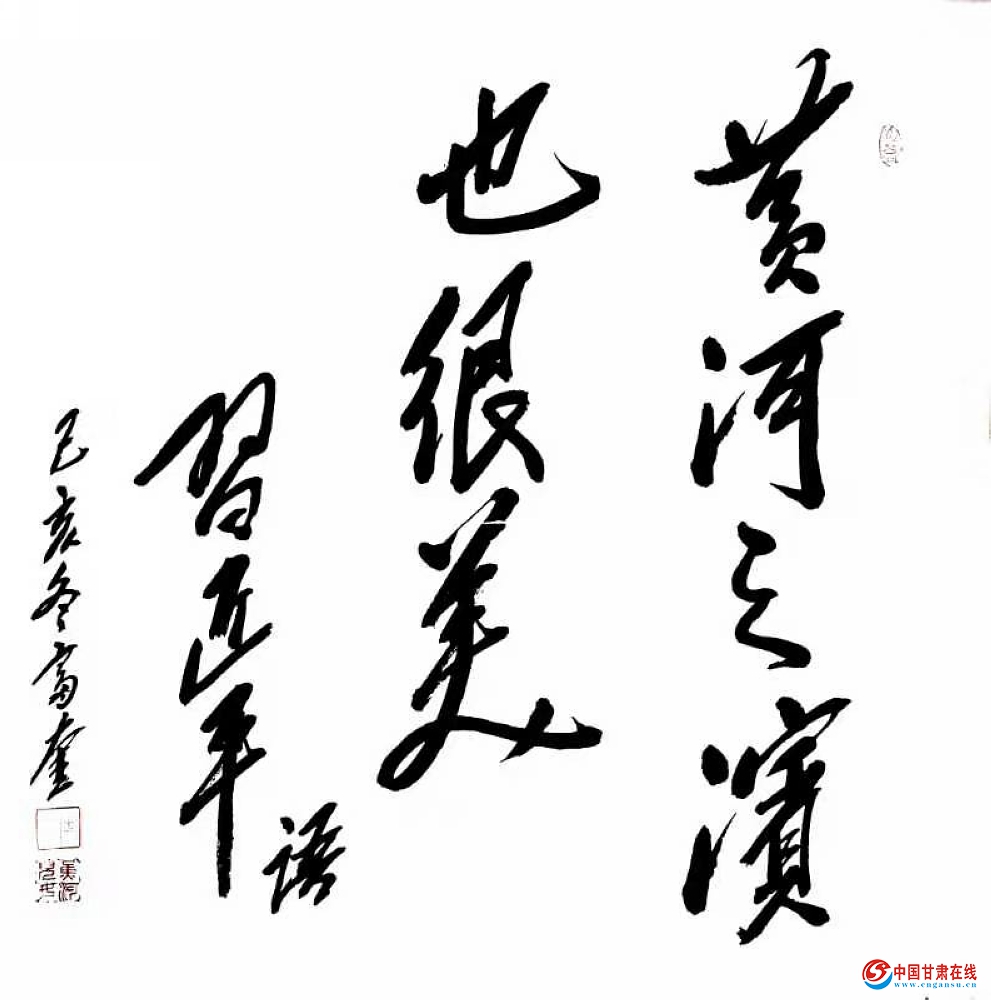 黄河之濱
也很美
習近平
語
己亥冬富奎
中国甘肃在线
www.cngansu.cn